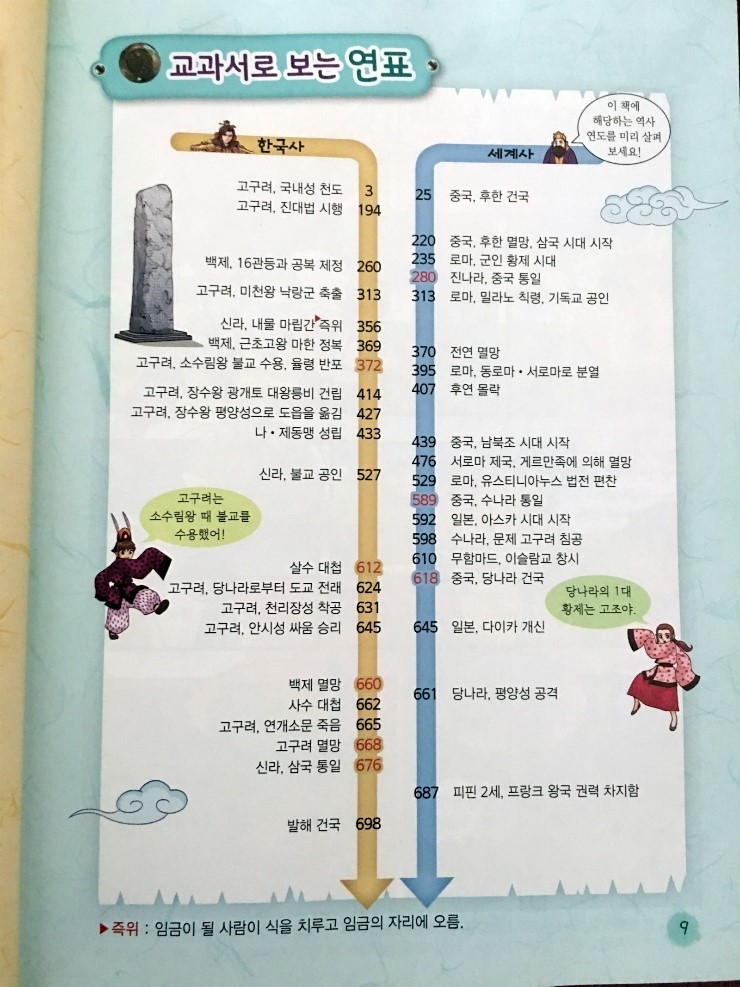 교과서로 보는 연표
이 책에
해당하는 역사
연도를 미리 살펴
보세요!
한국사
고구려, 국내성 천도 3
고구려, 진대법 시행 194
백제, 16관등과 공복 제정 260
고구려, 미천왕 낙랑군 축출 313
신라, 내물 마립간 ▶즉위 356
백제, 근초고왕 마한 정복 369
고구려, 소수림왕 불교 수용, 율령 반포 372
고구려, 장수왕 광개토 대왕릉비 건립 414
고구려, 장수왕 평양성으로 도읍을 옮김 427
나・제동맹 성립 433
신라, 불교 공인 527
고구려는
소수림왕 때 불교를
수용했어!
살수 대첩 612
고구려, 당나라로부터 도교 전래 624
고구려, 천리장성 착공 631
고구려, 안시성 싸움 승리 645
백제 멸망 660
사수 대첩 662
고구려, 연개소문 죽음 665
고구려 멸망 668
신라, 삼국 통일 676
발해 건국 698
세계사
25 중국, 후한 건국
220 중국, 후한 멸망, 삼국 시대 시작
235 로마, 군인 황제 시대
280 진나라, 중국 통일
313 로마, 밀라노 칙령, 기독교 공인
370 전연 멸망
395 로마, 동로마・서로마로 분열
407 후연 몰락
439 중국, 남북조 시대 시작
476 서로마 제국, 게르만족에 의해 멸망
529 로마, 유스티니아누스 법전 편찬
589 중국, 수나라 통일
592 일본, 아스카 시대 시작
598 수나라, 문제 고구려 침공
610 무함마드, 이슬람교 창시
618 중국, 당나라 건국
당나라의 1대
황제는 고조야.
645 일본, 다이카 개신
661 당나라, 평양성 공격
687 피핀 2세, 프랑크 왕국 권력 차지함
▶즉위 : 임금이 될 사람이 식을 치루고 임금의 자리에 오름.
9